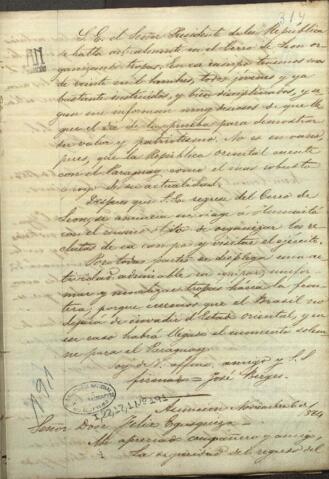 319
S. E. el Señor Presidente de la República
se halla actualmente en el Cerro de Leon or
ganizando tropas. En ese campo tenemos mas
de veinte mil hombres, todos jóvenes y ya
bastante instruidos, y bien disciplinados, y se
gun me informan muy deseosos de que lle
gue el dia de la prueba para demostrar
su valor y patriotismo. No es en vano,
pues, que la República Oriental cuenta
con el Paraguay como el mas robusto
apoyo de su actualidad.
Despues que S. E. regrese del Cerro de
Leon, se anuncia un viage a Humaitá
con el mismo objeto de organizar los re
clutas de ese campo y visitar el ejército.
Por todas partes se desplega una ac
tividad admirable en
mar y movilizar tropas hácia la fron
tera, porque creemos que el Brasil no
dejará de invadir el Estado Oriental, y en
ese caso habrá llegado el momento solem
ne para el Paraguay.
Soy de V. affmo. amigo y S. S.
firmado = José Berges.
Asuncion Noviembre 6/864
Señor Don Felix Egusquiza
Mi apreciado compañero y amigo,
La del regreso del